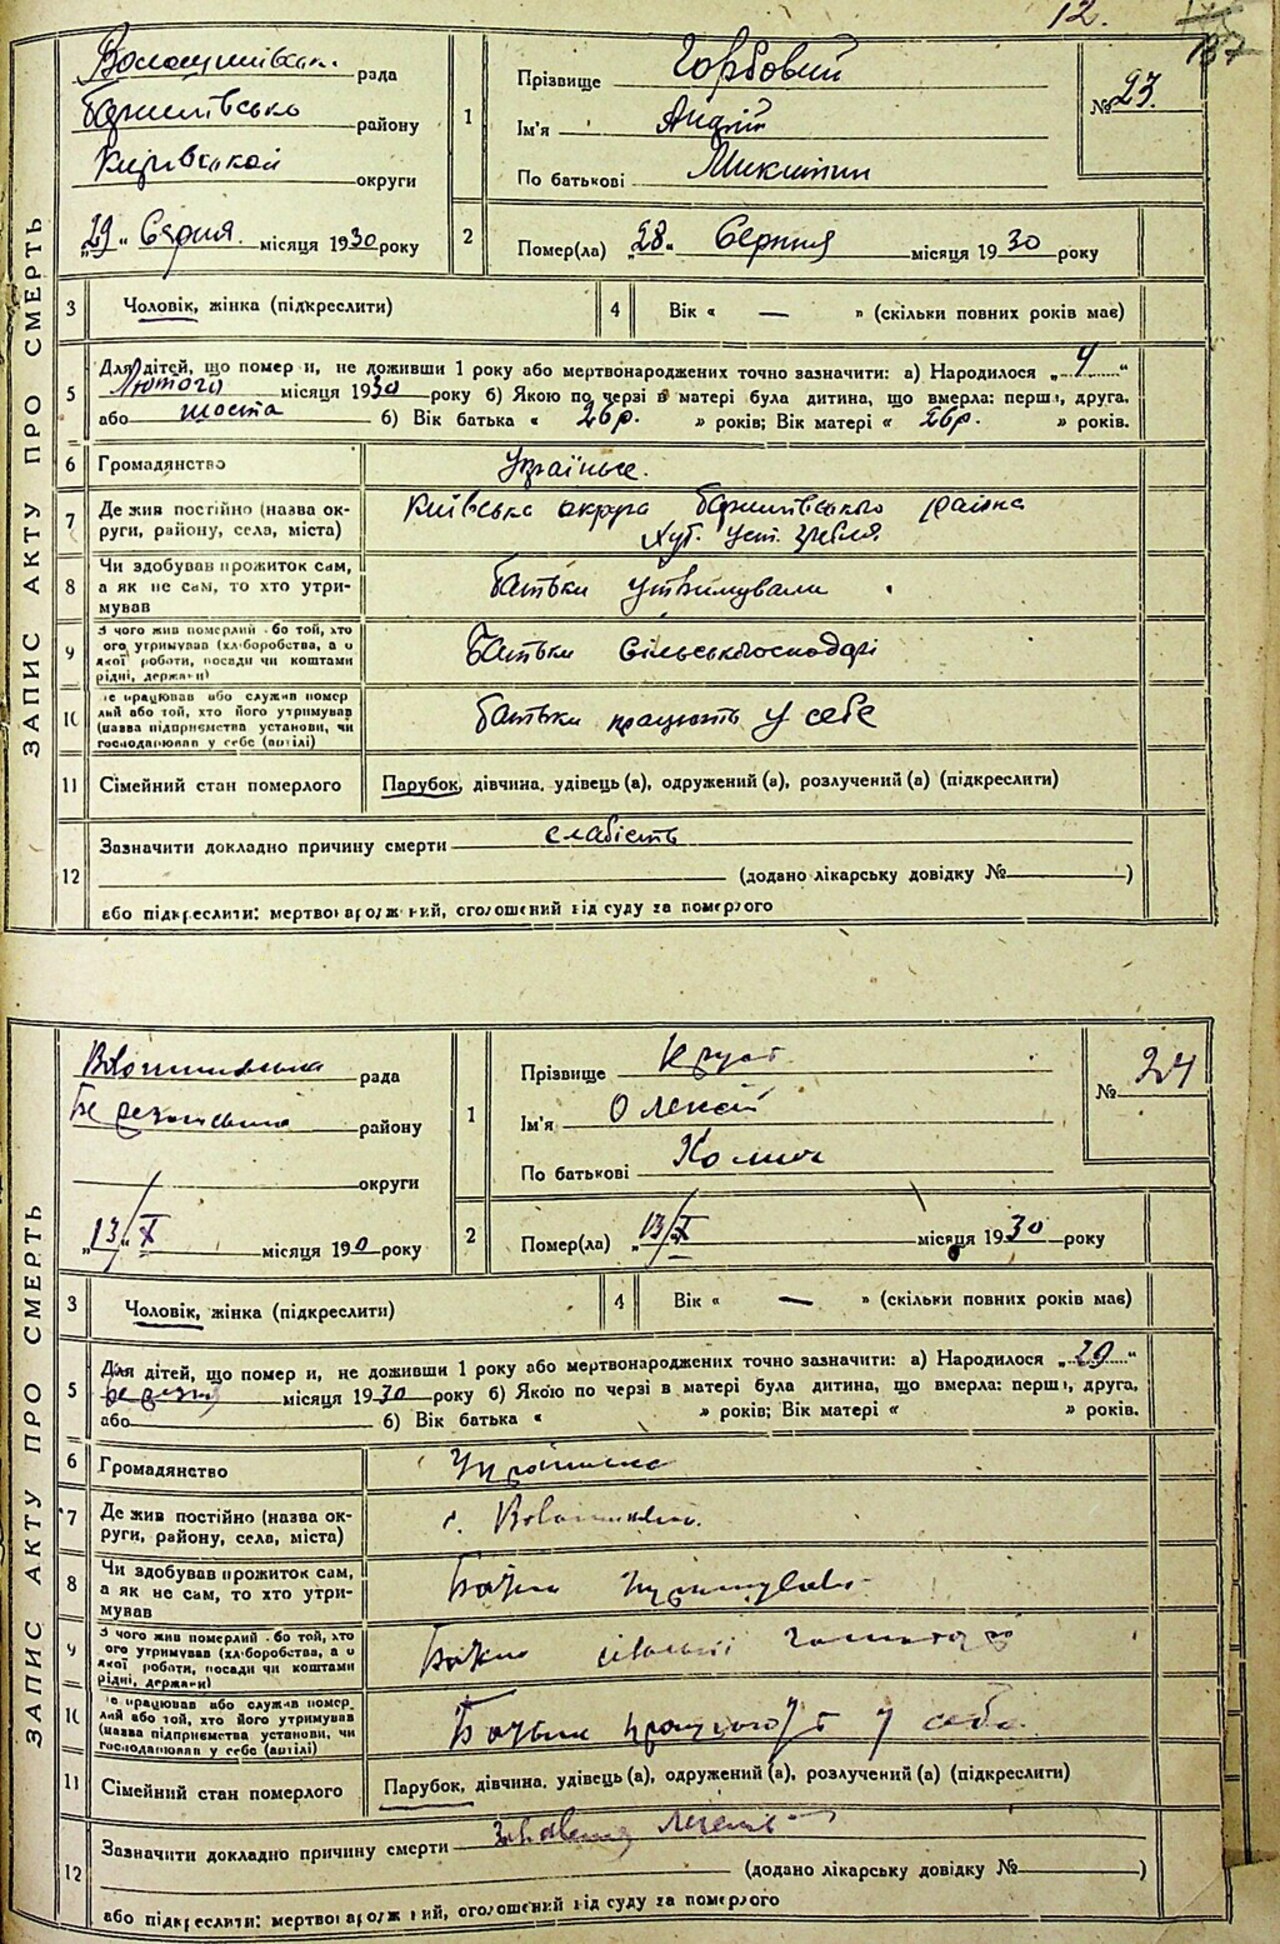 12.
137
ЗАПИС АКТУ ПРО СМЕРТЬ
рада
Баришівсько району
Київської округи
„29“ Серпня місяця 1930 року
1
Прізвище Горбовий
Ім'я Андрій
По батькові Микитин
№ 23.
2
Помер(ла) „28“ Серпня місяця 1930 року
3 Чоловік, жінка (підкреслити)
4 Вік « — » (скільки повних років має)
5 Для дітей, що помер и, не доживши 1 року або мертвонароджених точно зазначити: а) Народилося „4“
Лютого місяця 1930 року б) Якою по черзі в матері була дитина, що вмерла: перша, друга,
або шоста б) Вік батька « 26р. » років; Вік матері « 26р. » років.
6 Громадянство Українське.
7 Де жив постійно (назва ок-
руги, району, села, міста)
Київська округа Баришівського району
Хут.
8 Чи здобував прожиток сам,
а як не сам, то хто утри-
мував
Батьки утримували
9 З чого жив померлий або той, хто
його утримував (хліборобства, а о
якої роботи, посади чи коштами
рідні, держави)
Батьки сільськогосподарі
10 Де працював або служив помер
лий або той, хто його утримував
(назва підприємства установи, чи
господарював у себе (артілі)
батьки працюють у себе
11 Сімейний стан померлого Парубок, дівчина, удівець (а), одружений (а), розлучений (а) (підкреслити)
12 Зазначити докладно причину смерти слабість
(додано лікарську довідку № )
або підкреслити: мертвонароджений, оголошений від суду за померлого
ЗАПИС АКТУ ПРО СМЕРТЬ
рада
району
округи
„13“/X місяця 190 року
1
Прізвище
Ім'я Олексій
По батькові
№ 24
2
Помер(ла) „13“/X місяця 1930 року
3 Чоловік, жінка (підкреслити)
4 Вік « — » (скільки повних років має)
5 Для дітей, що помер и, не доживши 1 року або мертвонароджених точно зазначити: а) Народилося „29“
березня місяця 1930 року б) Якою по черзі в матері була дитина, що вмерла: перша, друга,
або б) Вік батька « » років; Вік матері « » років.
6 Громадянство
7 Де жив постійно (назва ок-
руги, району, села, міста)
с.
8 Чи здобував прожиток сам,
а як не сам, то хто утри-
мував
9 З чого жив померлий або той, хто
його утримував (хліборобства, а о
якої роботи, посади чи коштами
рідні, держави)
10 Де працював або служив помер
лий або той, хто його утримував
(назва підприємства установи, чи
господарював у себе (артілі)
у себе
11 Сімейний стан померлого Парубок, дівчина, удівець (а), одружений (а), розлучений (а) (підкреслити)
12 Зазначити докладно причину смерти
(додано лікарську довідку № )
або підкреслити: мертвонароджений, оголошений від суду за померлого